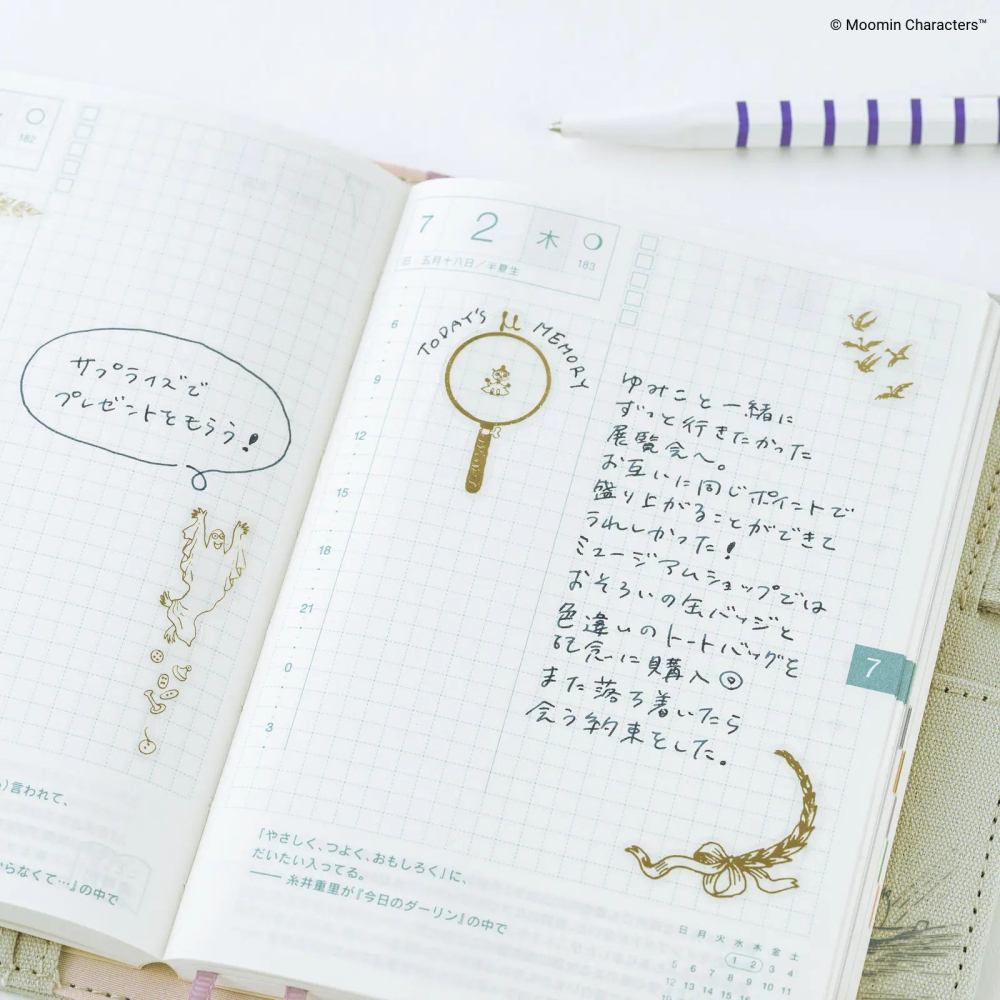 © Moomin Characters™
182
サプライズで
プレゼントをもらう!
言われて、
らなくて…』の中で
7 2 木
183
旧 五月十八日/半夏生
6
9
12
15
18
21
0
3
TODAY'S MEMORY
ゆみこと一緒に
ずっと行きたかった
展覧会へ。
お互いに同じポイントで
盛り上がることができて
うれしかった!
ミュージアムショップでは
おそろいの缶バッジと
色違いのトートバッグを
記念に購入
また落ち着いたら
会う約束をした。
7
「やさしく、つよく、おもしろく」に、
だいたい入ってる。
—— 糸井重里が『今日のダーリン』の中で
日 月 火 水 木 金 土
1 2 3 4
5 6 7 8 9 10 11
12 13 14 15 16